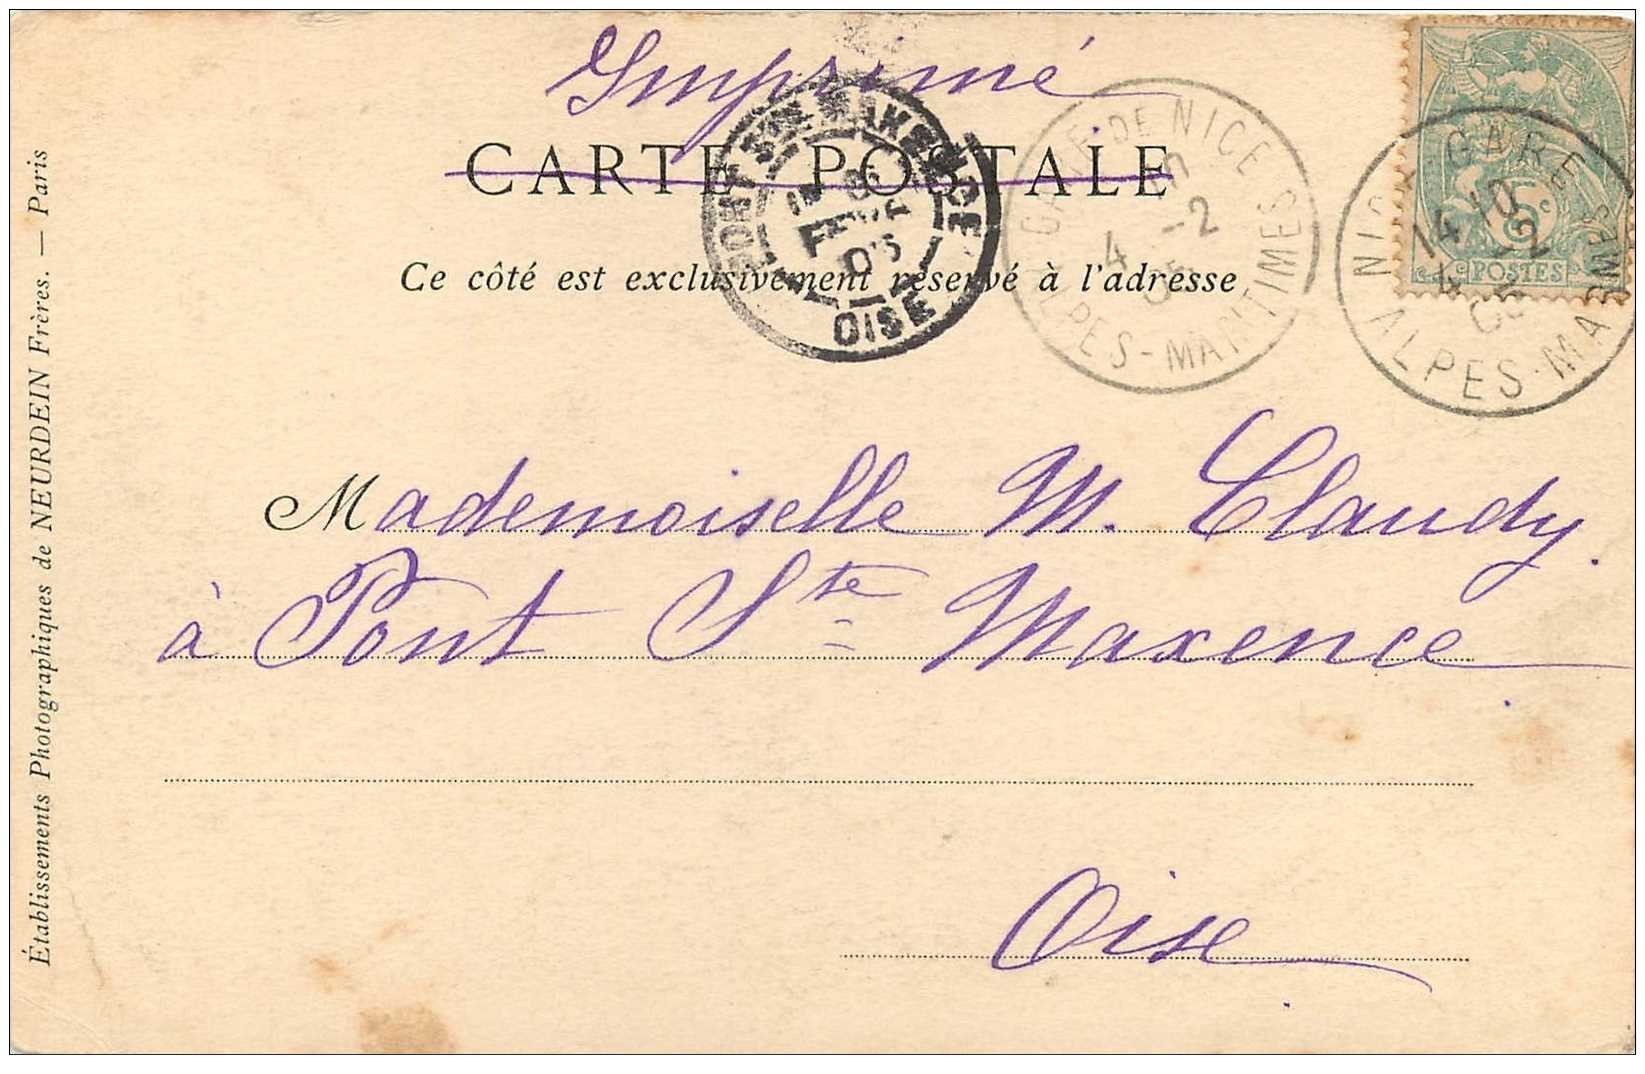 Imprimé
CARTE POSTALE
Ce côté est exclusivement réservé à l'adresse
PONT STE MAXENCE
FEVR
05
OISE
GARE DE NICE
4 -2
05
ALPES-MARITIMES
NICE GARE
14 10
4 -2
05
ALPES-MARMES
5c
POSTES
Mademoiselle M. Claudy.
à Pont Ste Maxence
Oise
Établissements Photographiques de NEURDEIN Frères. — Paris